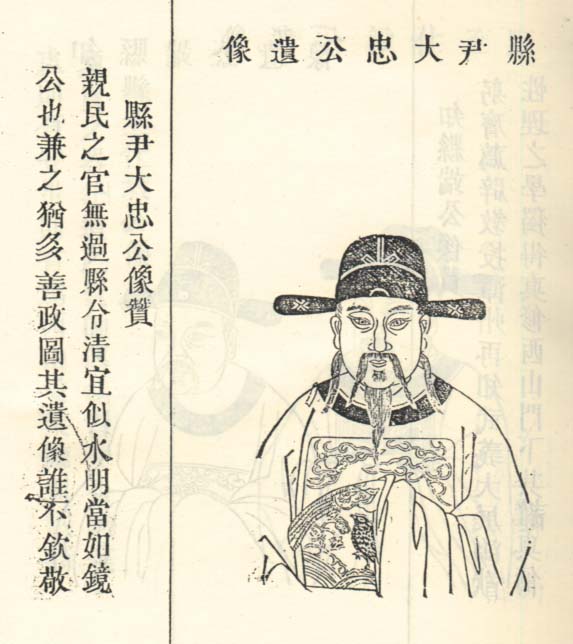 縣尹大忠公遺像
縣尹大忠公像贊
親民之官無過縣令清宜似水明當如鏡
公也兼之猶多善政圖其遺像誰不欽敬